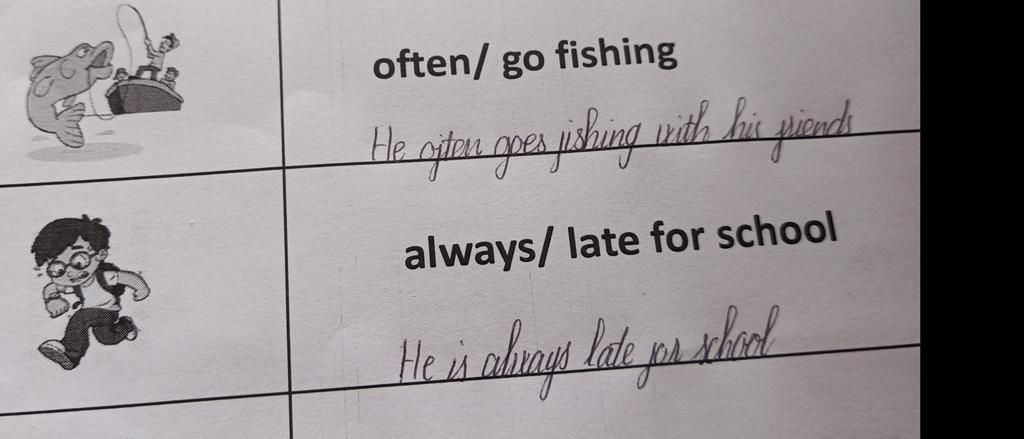 often/ go fishing
He often goes fishing with his friends
always/ late for school
He is always late for school